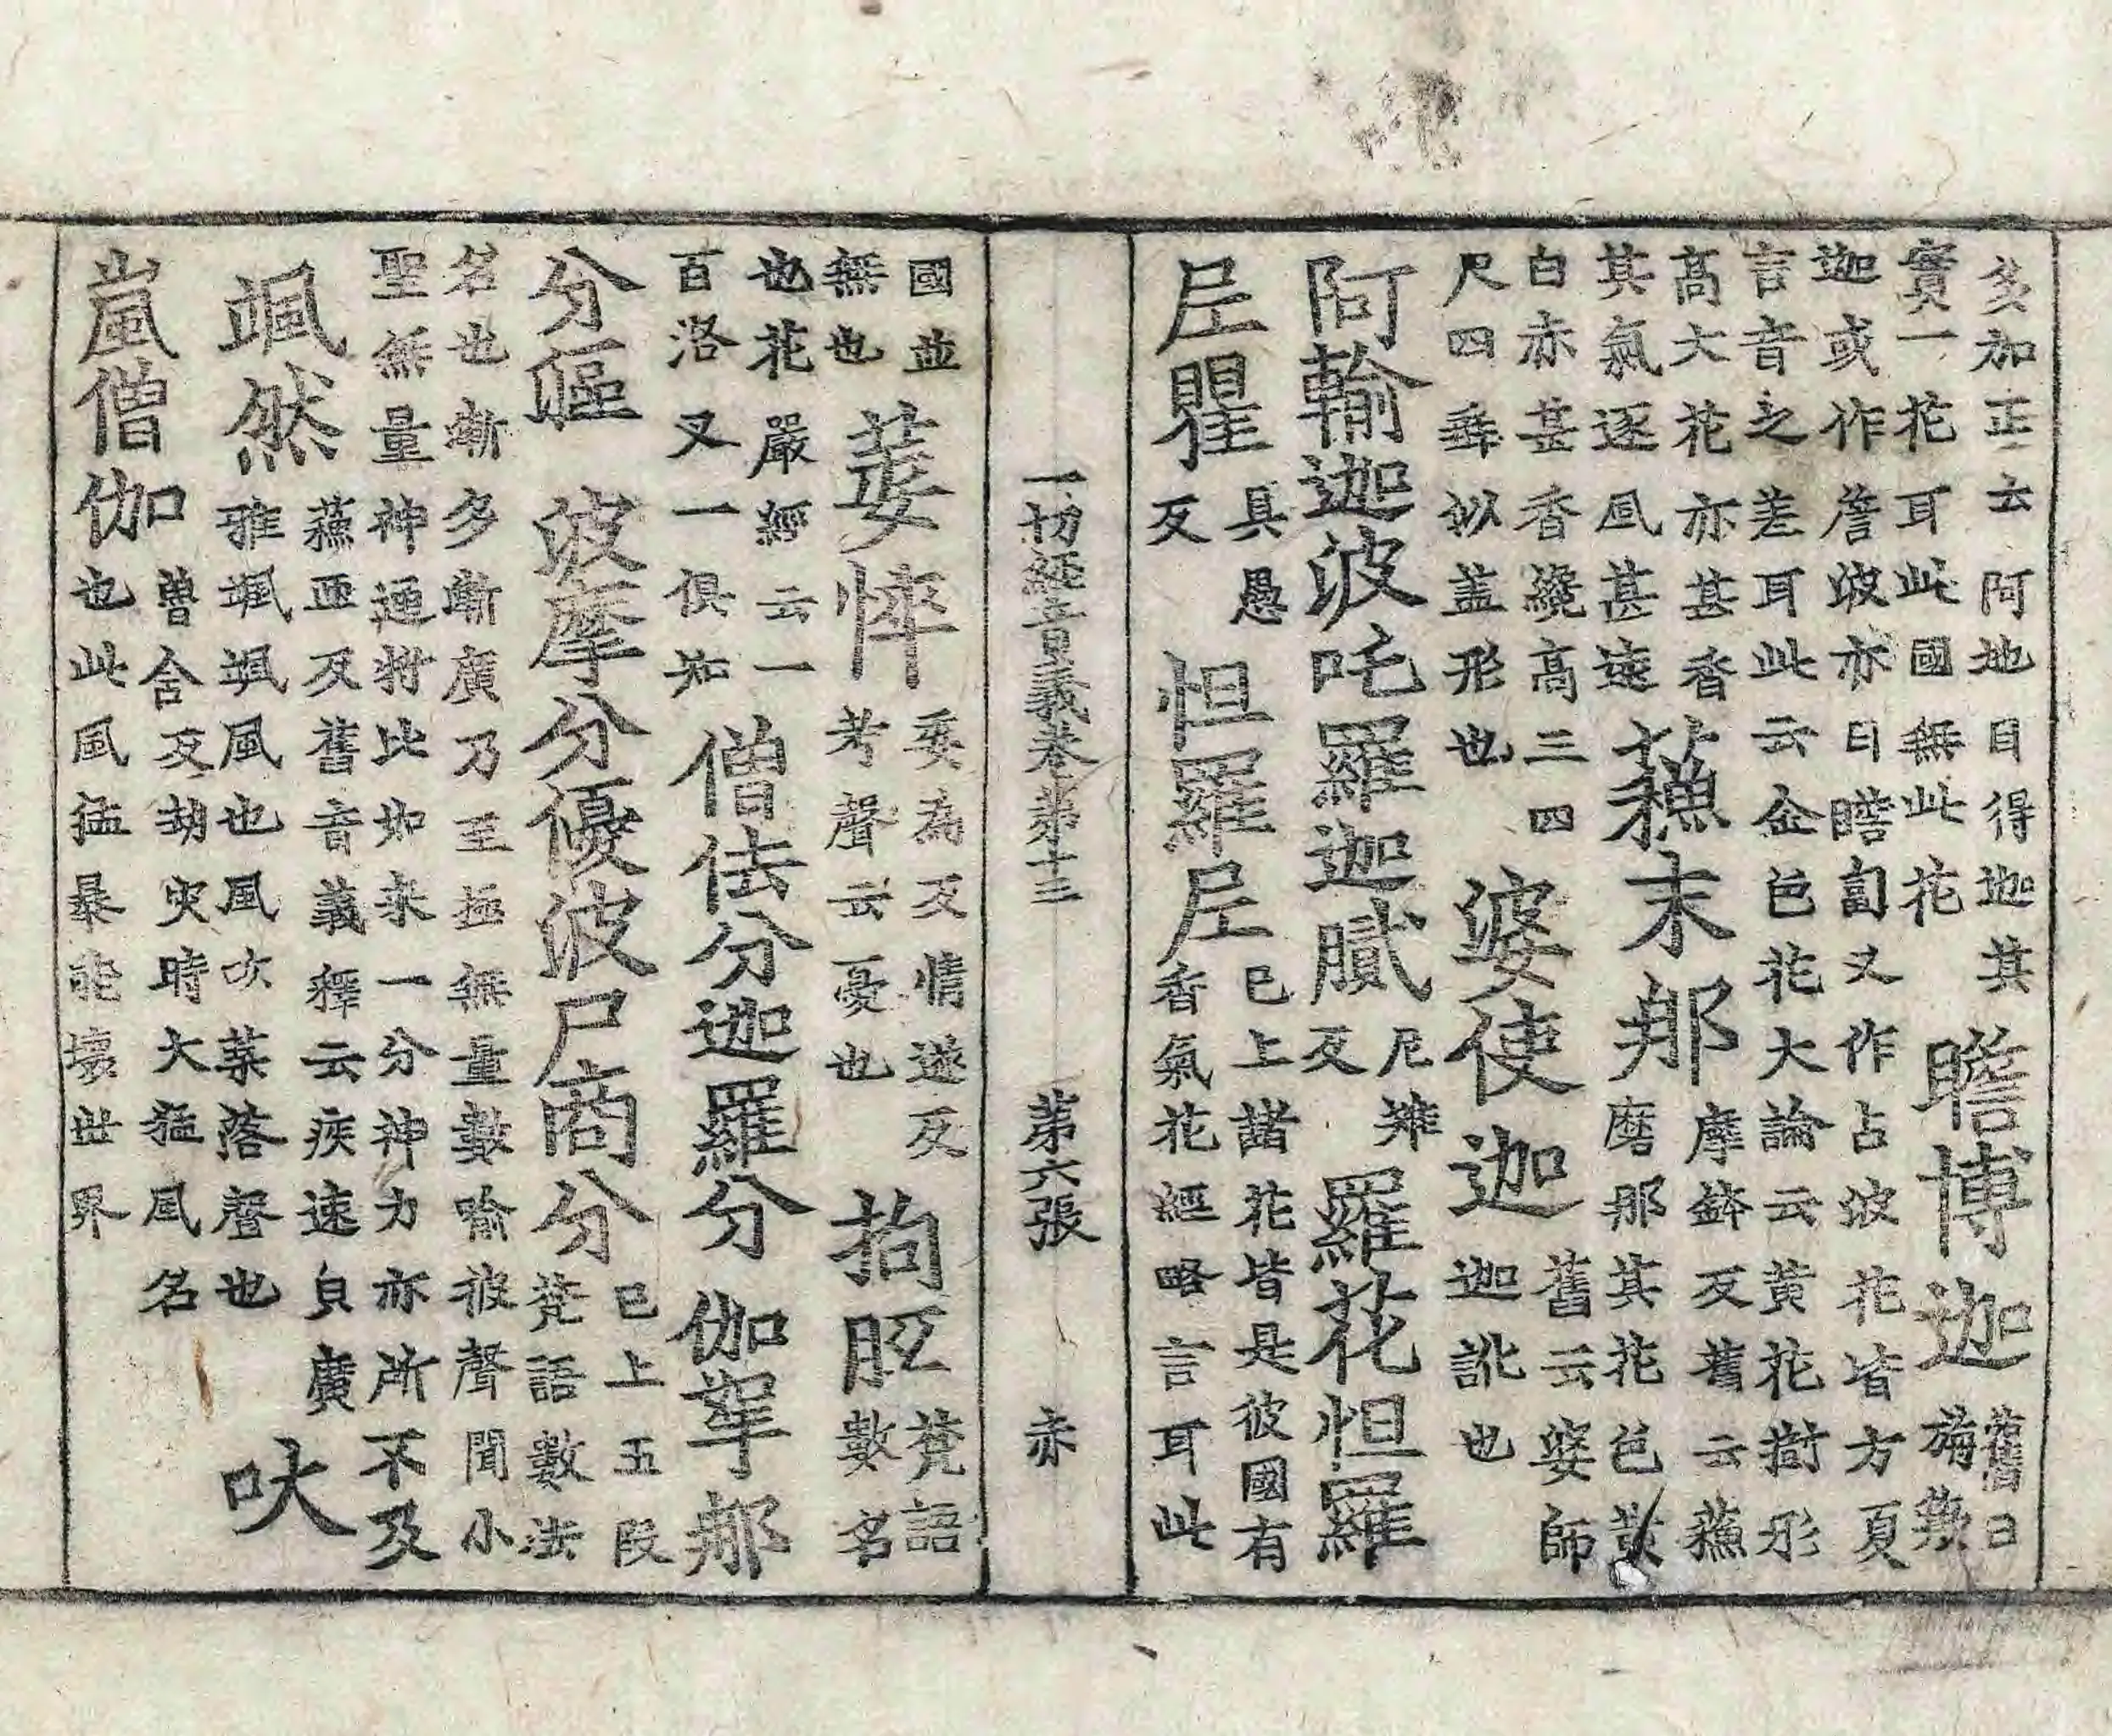 多加正云阿地目得迦其
實一花耳此國無此花
瞻博迦
舊曰
旃簸
迦或作詹波亦曰瞻匐又作占波花皆方夏
言音之差耳此云金色花大論云黃花樹形
高大花亦甚香
其氣逐風甚遠
蘓末那
摩鉢反舊云蘓
磨那其花色黃
白赤甚香纔高三四
尺四垂似盖形也
婆使迦
舊云婆師
迦訛也
阿輸迦波吒羅迦膩
尼雉
反
羅花怛羅
𡰱瞿
具愚
反
怛羅𡰱
已上諸花皆是彼國有
香氣花經略言耳此
一切經音義卷第十三 第六張 赤
國並
無也
萎悴
委為反情遂反
考聲云憂也
拘胝
梵語
數名
也花嚴經云一
百洛叉一俱知
僧佉分迦羅分伽拏那
分傴波摩分優波尸商分
已上五段
梵語數法
名也漸多漸廣乃至極無量數喻彼聲聞小
聖無量神通將比如來一分神力亦所不及
颯然
蘓匝反舊音義釋云疾速皃廣
雅颯颯風也風吹葉落聲也
吠
嵐僧伽
魯含反胡臾時大猛風名
也此風猛暴能壞世界